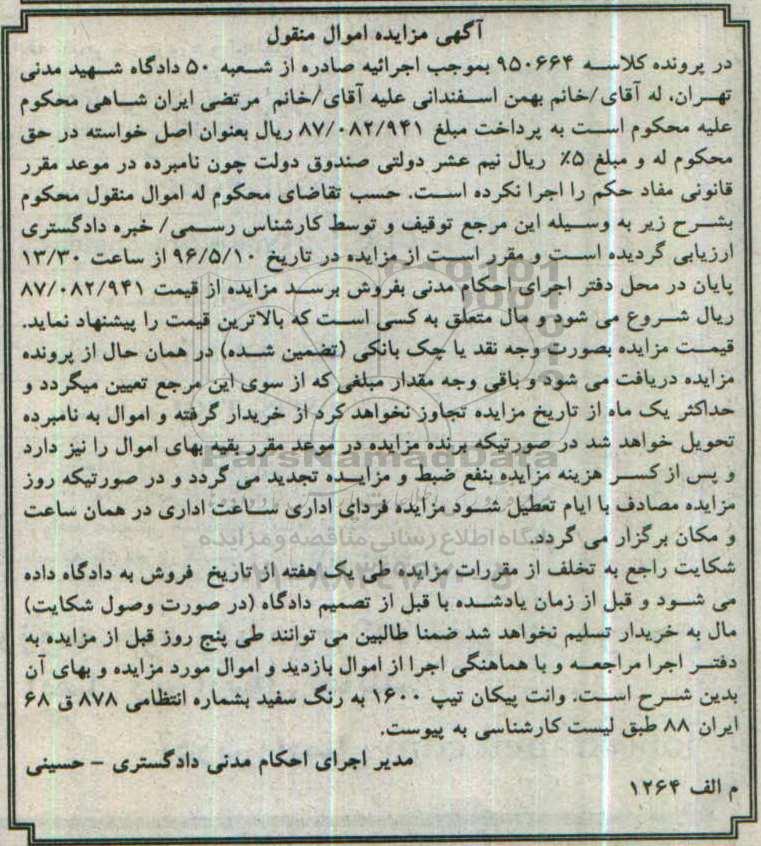 آگهی مزایده اموال منقول
در پرونده کلاسه ۹۵۰۶۶۴ بموجب اجرائیه صادره از شعبه ۵۰ دادگاه شهید مدنی
تهران، له آقای/خانم بهمن اسفندانی علیه آقای/خانم مرتضی ایران شاهی محکوم
علیه محکوم است به پرداخت مبلغ ۸۷/۰۸۲/۹۴۱ ریال بعنوان اصل خواسته در حق
محکوم له و مبلغ ۵٪ ریال نیم عشر دولتی صندوق دولت چون نامبرده در موعد مقرر
قانونی مفاد حکم را اجرا نکرده است. حسب تقاضای محکوم له اموال منقول محکوم
بشرح زیر به وسیله این مرجع توقیف و توسط کارشناس رسمی/ خبره دادگستری
ارزیابی گردیده است و مقرر است از مزایده در تاریخ ۹۶/۵/۱۰ از ساعت ۱۳/۳۰
پایان در محل دفتر اجرای احکام مدنی بفروش برسد مزایده از قیمت ۸۷/۰۸۲/۹۴۱
ریال شروع می شود و مال متعلق به کسی است که بالاترین قیمت را پیشنهاد نماید.
قیمت مزایده بصورت وجه نقد یا چک بانکی (تضمین شده) در همان حال از پرونده
مزایده دریافت می شود و باقی وجه مقدار مبلغی که از سوی این مرجع تعیین میگردد و
حداکثر یک ماه از تاریخ مزایده تجاوز نخواهد کرد از خریدار گرفته و اموال به نامبرده
تحویل خواهد شد در صورتیکه برنده مزایده در موعد مقرر بقیه بهای اموال را نیز دارد
و پس از کسر هزینه مزایده بنفع ضبط و مزایده تجدید می گردد و در صورتیکه روز
مزایده مصادف با ایام تعطیل شود مزایده فردای اداری ساعت اداری در همان ساعت
و مکان برگزار می گردد.
شکایت راجع به تخلف از مقررات مزایده طی یک هفته از تاریخ فروش به دادگاه داده
می شود و قبل از زمان یادشده با قبل از تصمیم دادگاه (در صورت وصول شکایت)
مال به خریدار تسلیم نخواهد شد ضمنا طالبین می توانند طی پنج روز قبل از مزایده به
دفتر اجرا مراجعه و با هماهنگی اجرا از اموال بازدید و اموال مورد مزایده و بهای آن
بدین شرح است. وانت پیکان تیپ ۱۶۰۰ به رنگ سفید بشماره انتظامی ۸۷۸ ق ۶۸
ایران ۸۸ طبق لیست کارشناسی به پیوست.
مدیر اجرای احکام مدنی دادگستری - حسینی
م الف ۱۲۶۴
ParsNamadData
پایگاه اطلاع رسانی مناقصه و مزایده